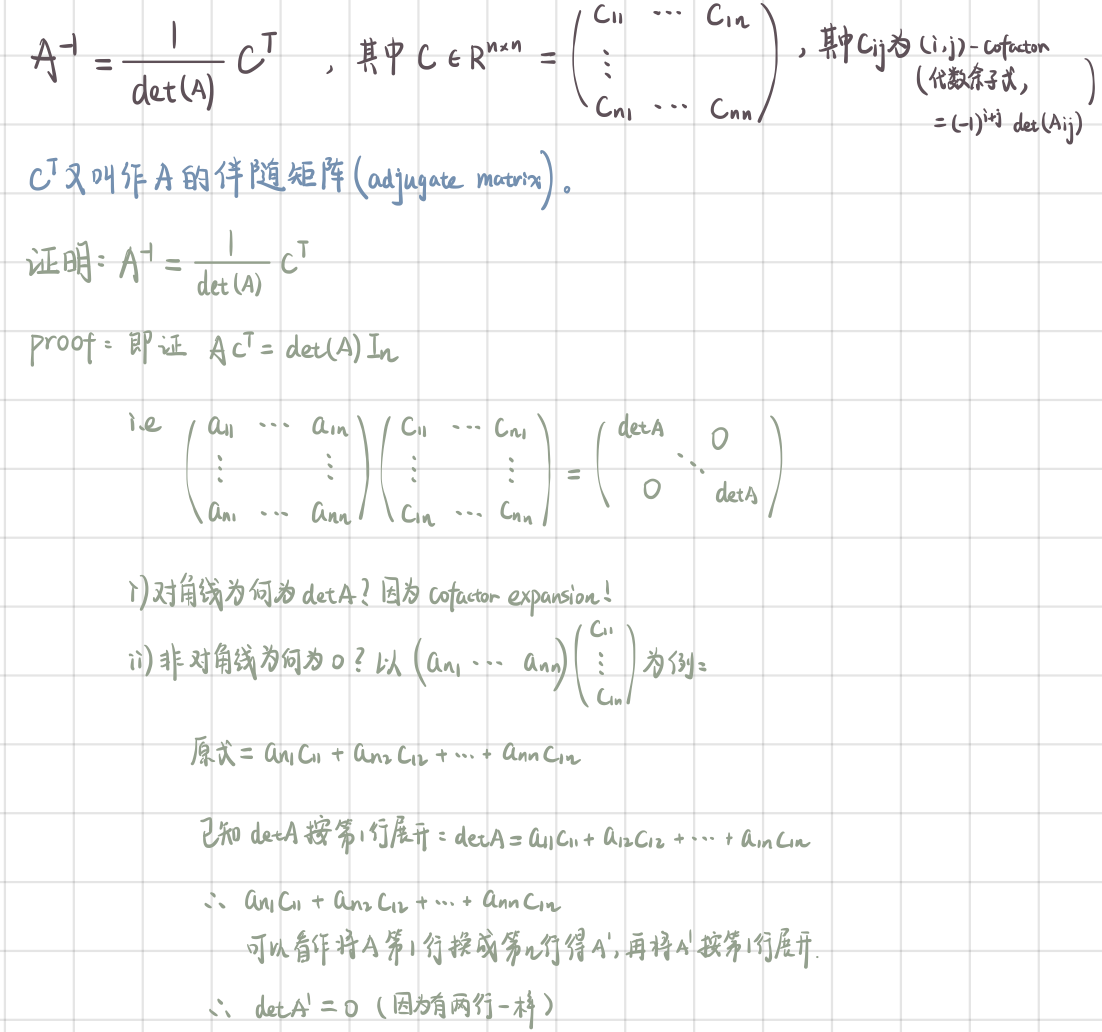 A⁻¹ = 1/det(A) Cᵀ , 其中 C ∈ Rⁿˣⁿ = ( C₁₁ ⋯ C₁ₙ ⋮ Cₙ₁ ⋯ Cₙₙ ) , 其中Cᵢⱼ为 (i,j)-cofactor
(代数余子式,
= (-1)ⁱ⁺ʲ det(Aᵢⱼ) )
Cᵀ又叫作A的伴随矩阵(adjugate matrix)。
证明: A⁻¹ = 1/det(A) Cᵀ
proof: 即证 ACᵀ = det(A) Iₙ
i.e ( a₁₁ ⋯ a₁ₙ ⋮ ⋮ aₙ₁ ⋯ aₙₙ ) ( C₁₁ ⋯ Cₙ₁ ⋮ ⋮ C₁ₙ ⋯ Cₙₙ ) = ( detA 0 ⋱ 0 detA )
i) 对角线为何为detA? 因为 cofactor expansion!
ii) 非对角线为何为0? 以 (aₙ₁ ⋯ aₙₙ) ( C₁₁ ⋮ C₁ₙ ) 为例:
原式 = aₙ₁C₁₁ + aₙ₂C₁₂ + ⋯ + aₙₙC₁ₙ
已知 detA 按第1行展开: detA = a₁₁C₁₁ + a₁₂C₁₂ + ⋯ + a₁ₙC₁ₙ
∴ aₙ₁C₁₁ + aₙ₂C₁₂ + ⋯ + aₙₙC₁ₙ
可以看作将A第1行换成第n行得A', 再将A'按第1行展开.
∴ detA' = 0 (因为有两行一样)